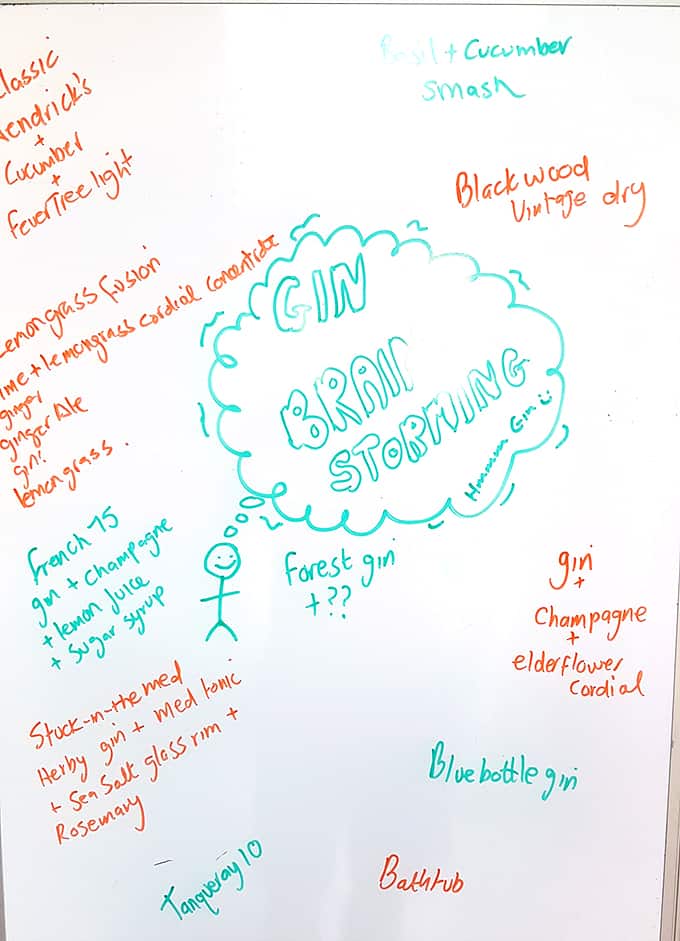 Classic
Hendrick's
+
Cucumber
+
FeverTree light
Basil + Cucumber
Smash
Blackwood
Vintage dry
Lemongrass fusion
lime + lemongrass cordial concentrate
ginger
ginger Ale
gin!
lemongrass.
GIN
BRAIN
STORMING
Hmmmm Gin
French 75
gin + Champagne
+ lemon juice
+ sugar syrup
Forest gin
+ ??
gin
+
Champagne
+
elderflower
Cordial
Stuck-in-the med
Herby gin + med tonic
+ Sea Salt glass rim +
Rosemary
Bluebottle gin
Tanqueray 10
Bathtub